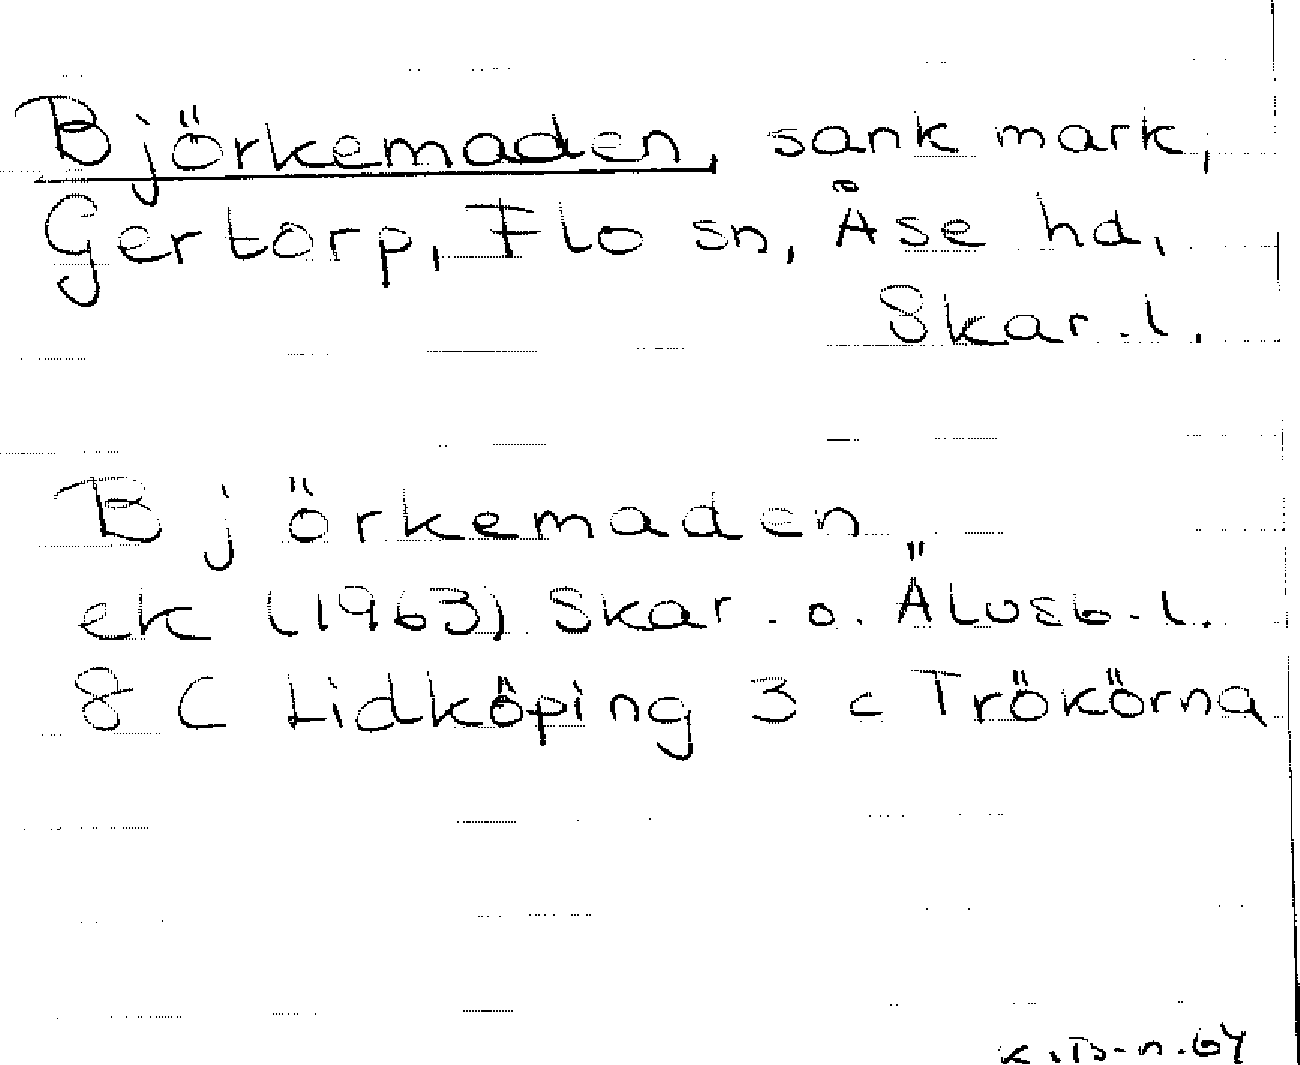 Björkemaden, sank mark,
Gertorp, Flo sn, Åse hd,
Skar. l.
Björkemaden
ek (1963) Skar. o. Älvsb. l.
8 C Lidköping 3 c Trökörna
K.B-n. 64